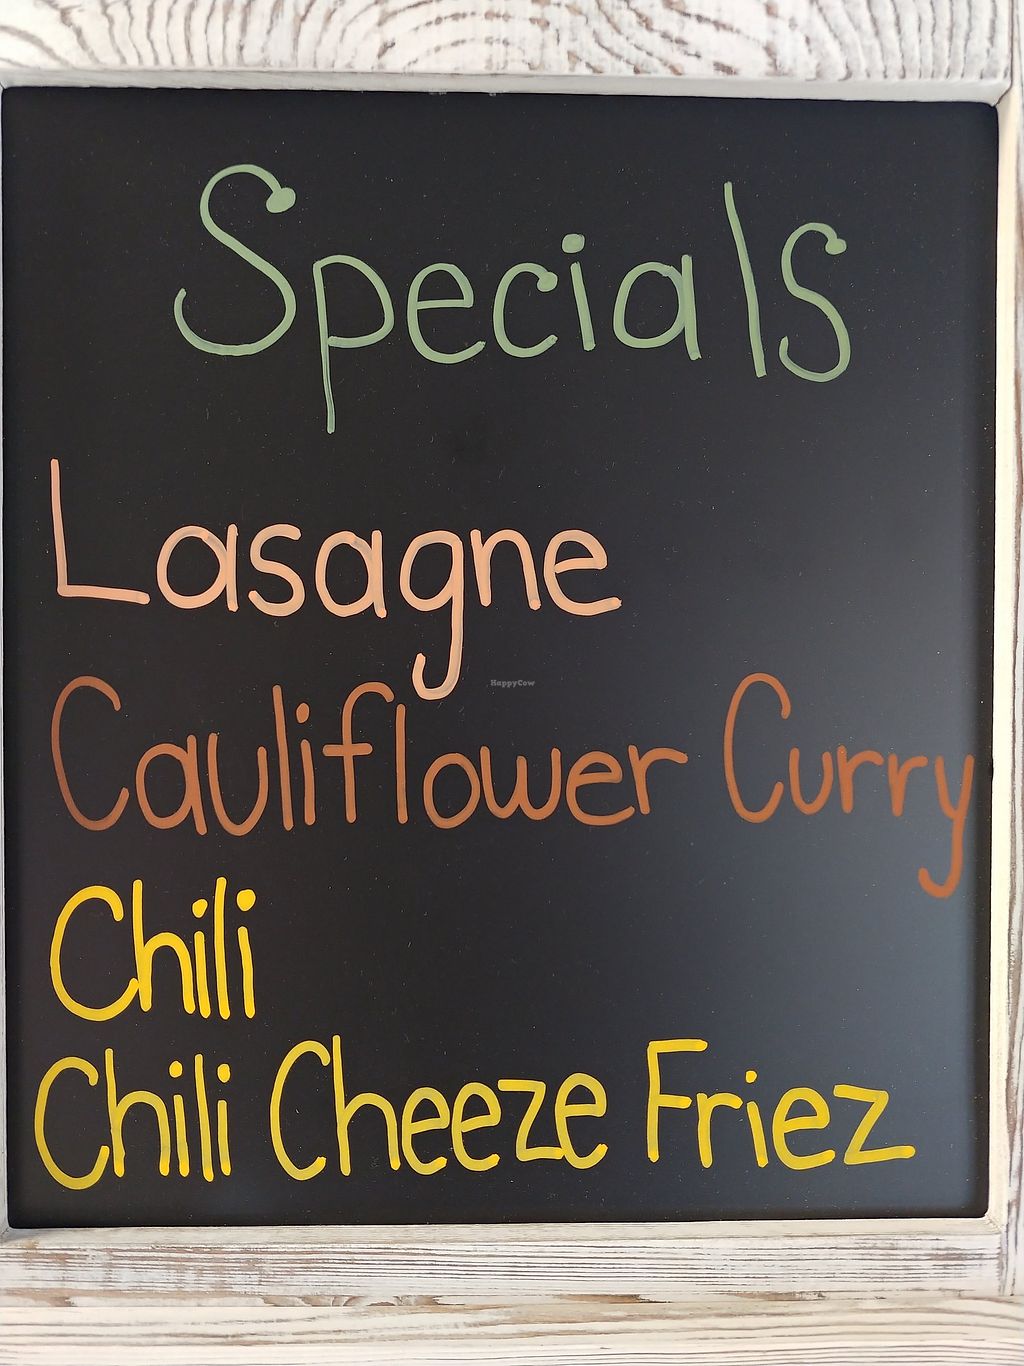 Specials
Lasagne
HappyCow
Cauliflower Curry
Chili
Chili Cheeze Friez